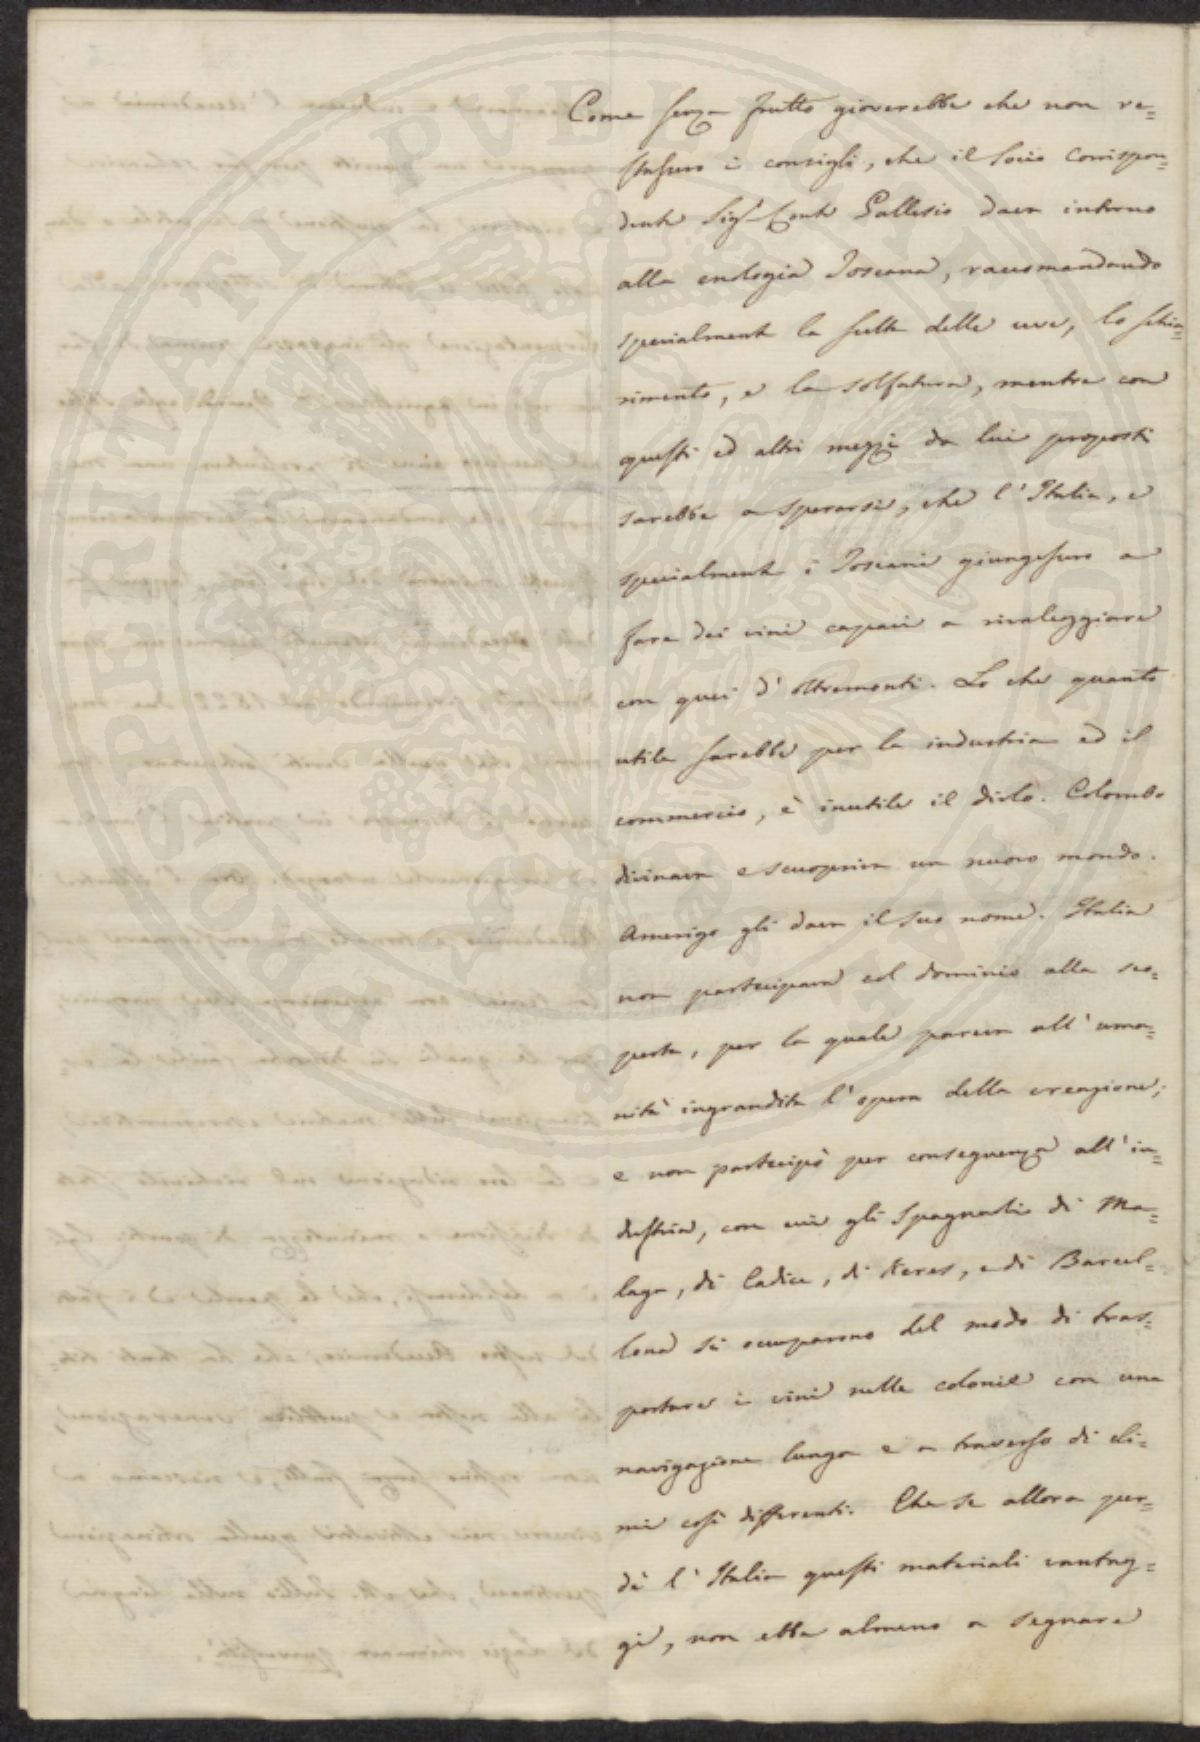 Come senza frutto gioverebbe che non re=
stassero i consigli, che il Socio Corrispon=
dente Sig.r Conte Gallesio dava intorno
alla enologia Toscana, raccomandando
specialmente la scelta delle uve, lo schia=
rimento, e la solfatura, mentre con
questi ed altri mezzi da lui proposti
sarebbe a sperarsi, che l'Italia, e
specialmente i Toscani giungessero a
fare dei vini capaci a rivaleggiare
con quei d'oltremonti. Lo che quanto
utile sarebbe per la industria ed il
commercio, è inutile il dirlo. Colombo
divinava e scuopriva un nuovo mondo.
Amerigo gli dava il suo nome. Italia
non partecipava col dominio alla sco=
perta, per la quale pareva all'uma=
nità ingrandita l'opera della creazione;
e non partecipò per conseguenza all'in=
dustria, con cui gli Spagnoli di Ma=
laga, di Cadice, di Xeres, e di Barcel=
lona si occuparono del modo di tras=
portare i vini nelle colonie con una
navigazione lunga e a traverso di cli=
mi così differenti. Che se allora per=
dè l'Italia questi materiali vantag=
gi, non ebbe almeno a segnare
PROSPERITATI PVBLICAE AVGENDAE